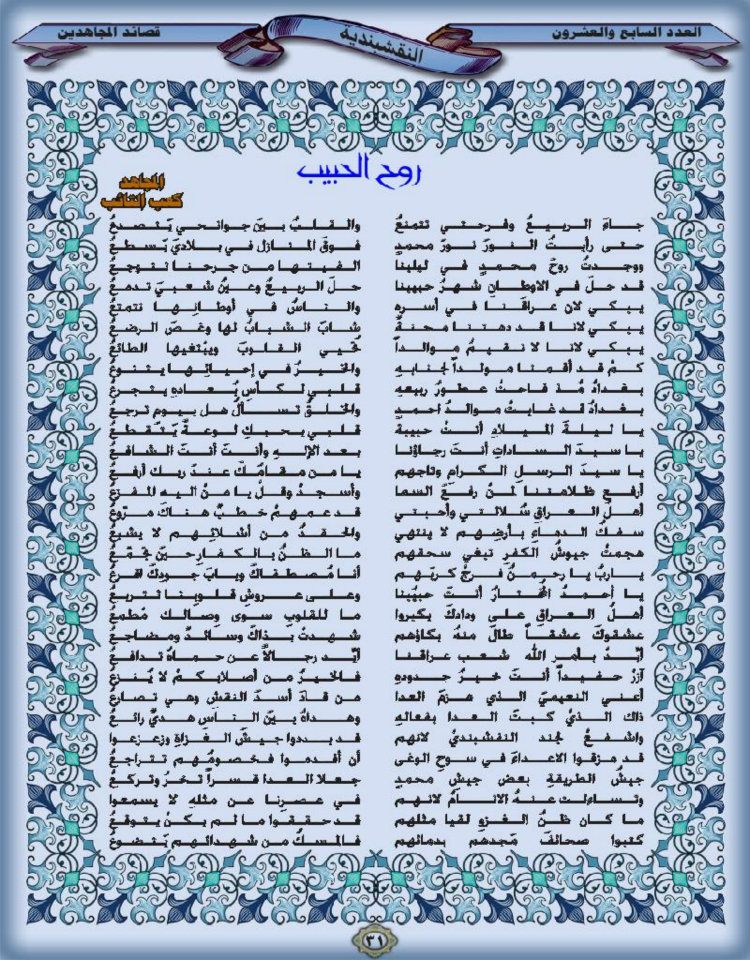 العدد السابع والعشرون
النقشبندية
قصائد المجاهدين
روح الحبيب
المجاهد
كعب التائب
جاءَ الربيعُ وفرحتي تتمنعُ والقلبُ بينَ جوانحي يتصدعُ
حتى رأيتُ النورَ نورَ محمدٍ فوقَ المنازل في بلاديَ يسطعُ
ووجدتُ روحَ محمدٍ في ليلنا الفيتها من جرحنا تتوجعُ
قد حلَ في الاوطانِ شهرُ حبيبنا حلَ الربيعُ وعينُ شعبيَ تدمعُ
يبكي لان عراقَنا في أسرهِ والناسُ في أوطانِها تتمتعُ
يبكي لانا قد دهتنا محنةٌ شابَ الشبابُ لها وغصَ الرضعُ
يبكي لانا لا نقيمُ موالداً تُحيي القلوبَ ويبتغيها الطائعُ
كمْ قد أقمنا مولداً لجنابهِ والخيرُ في إحيائِها يتنوعُ
بغدادُ مُذ فاحتْ عطورُ ربيعهِ قلبي لكأسِ بُعادهِ يتجرعُ
بغدادُ قد غابتْ موالدُ احمدٍ والخلقُ تسألُ هل بيوم ترجعُ
يا ليلةَ الميلادِ أنتَ حبيبةٌ قلبي بحبكِ لوعةً يتقطعُ
يا سيدَ الساداتِ أنتَ رجاؤنا بعد الإلهِ وأنتَ أنتَ الشافعُ
يا سيدَ الرسلِ الكرام وتاجهم يا من مقامُكَ عند ربك أرفعُ
أرفعِ ظلامتنا لمنْ رفعَ السما وأسجدُ وقلْ يا منْ اليه المفزعُ
أهلُ العراق سُلالتي وأحبتي قد عمهمْ خطبٌ هناكَ مروّعُ
سفكُ الدماءِ بأرضِهم لا ينتهي والحقدُ من أشلائِهم لا يشبعُ
هجمتْ جيوشُ الكفرِ تبغي سحقهم ما الظنُ بالكفارِ حينَ تجمّعُ
ياربُ يا رحمنُ فرجْ كربَهم أنا مُصطفاكَ وبابَ جودكَ اقرعُ
يا أحمدُ المُختارُ أنتَ حبيُبنا وعلى عروشِ قلوبِنا تتربعُ
أهلُ العراقِ على ودادِكَ بكيروا ما للقلوبِ سوى وصالك مُطمعُ
عشقوكَ عشقاً طالَ منهُ بكاؤهم شهدتْ بذاكَ وسائدُ ومضاجعُ
أيدْ بأمرِ الله شعب عراقنا أيّد رجالاً عن حماهُ تدافعُ
آزرْ حفيداً أنتَ خيرُ جدودهِ فالخيرُ من أصلابكمْ لا يُنزعُ
أعني النعيميَ الذي هزمَ العدا من قادَ أسدَ النقشِ وهي تصارعُ
ذاك الذيُ كبتَ العدا بفعالهِ وهداهُ بينَ الناسِ هديٌ رائعُ
واشفعُ لجند النقشبنديُ لانهم قد بددوا جيشَ الغزاةِ وزعزعوا
قد مزقوا الاعداءَ في سوحِ الوغى أن أقدموا فخصومُهم تتراجعُ
جيشُ الطريقةِ بعض جيشِ محمدٍ جعلا العدا قسراً تخرُ وتركعُ
وتساءلت عنهُ الانامُ لانهم في عصرِنا عن مثلهِ لا يسمعوا
ما كان ظنُ الغزوِ لقيا مثلهم قد حققوا ما لم يكنْ يتوقعُ
كتبوا صحائفَ مَجدهم بدمائهم فالمسكُ من شهدائهم يَتضوعُ
٣١